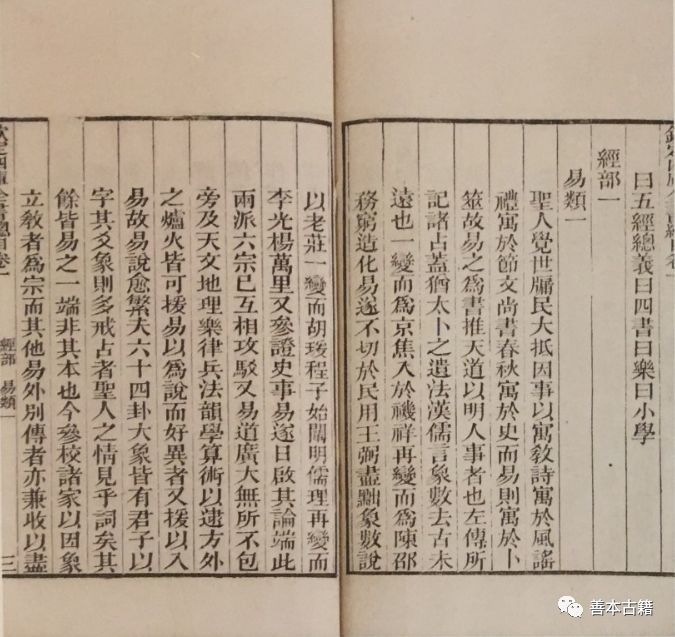 欽定四庫全書總目卷一
曰五經總義曰四書曰樂曰小學
經部一
易類一
聖人覺世牖民大抵因事以寓敎詩寓於風謠
禮寓於節文尚書春秋寓於史而易則寓於卜
筮故易之爲書推天道以明人事者也左傳所
記諸占蓋猶太卜之遺法漢儒言象數去古未
遠也一變而爲京焦入於禨祥再變而爲陳邵
務窮造化易遂不切於民用王弼盡黜象數說
以老莊一變而胡瑗程子始闡明儒理再變而
李光楊萬里又參證史事易遂日啟其論端此
兩派六宗已互相攻駁又易道廣大無所不包
旁及天文地理樂律兵法韻學算術以逮方外
之爐火皆可援易以爲說而好異者又援以入
易故易說愈繁夫六十四卦大象皆有君子以
字其爻象則多戒占者聖人之情見乎詞矣其
餘皆易之一端非其本也今參校諸家以因象
立敎者爲宗而其他易外別傳者亦兼收以盡
欽定四庫全書總目卷一 經部 易類一 三
善本古籍